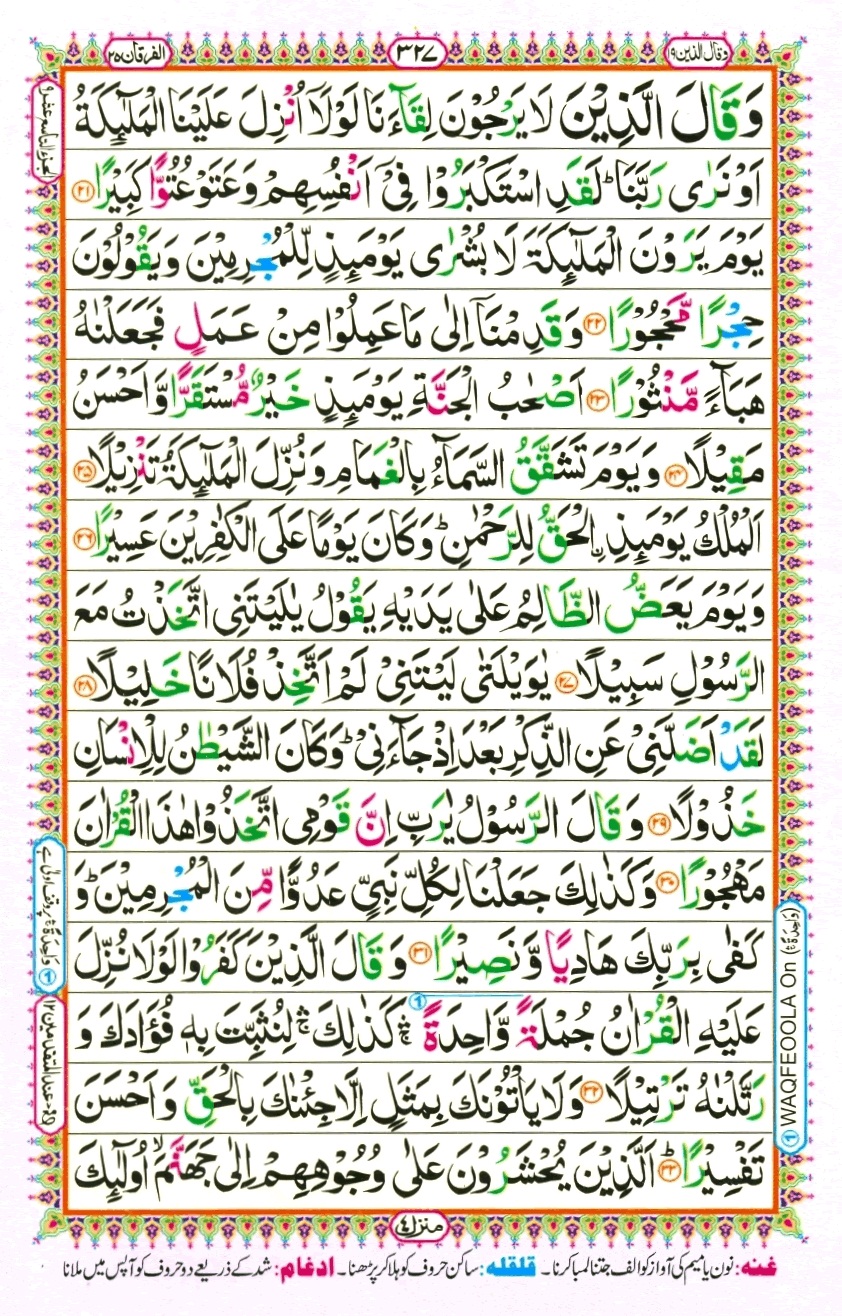 وقال الذین ۱۹
۳۲۷
الفرقان ۲۵
وَقَالَ الَّذِیْنَ لَا یَرْجُوْنَ لِقَآءَنَا لَوْلَاۤ اُنْزِلَ عَلَیْنَا الْمَلٰٓئِكَةُ
اَوْ نَرٰی رَبَّنَاؕ لَقَدِ اسْتَكْبَرُوْا فِیْۤ اَنْفُسِهِمْ وَعَتَوْ عُتُوًّا كَبِیْرًا ۲۱
یَوْمَ یَرَوْنَ الْمَلٰٓئِكَةَ لَا بُشْرٰی یَوْمَئِذٍ لِّلْمُجْرِمِیْنَ وَیَقُوْلُوْنَ
حِجْرًا مَّحْجُوْرًا ۲۲ وَقَدِمْنَاۤ اِلٰی مَا عَمِلُوْا مِنْ عَمَلٍ فَجَعَلْنٰهُ
هَبَآءً مَّنْثُوْرًا ۲۳ اَصْحٰبُ الْجَنَّةِ یَوْمَئِذٍ خَیْرٌ مُّسْتَقَرًّا وَّاَحْسَنُ
مَقِیْلًا ۲۴ وَیَوْمَ تَشَقَّقُ السَّمَآءُ بِالْغَمَامِ وَنُزِّلَ الْمَلٰٓئِكَةُ تَنْزِیْلًا ۲۵
اَلْمُلْكُ یَوْمَئِذِ ِ۟الْحَقُّ لِلرَّحْمٰنِؕ وَكَانَ یَوْمًا عَلَی الْكٰفِرِیْنَ عَسِیْرًا ۲۶
وَیَوْمَ یَعَضُّ الظَّالِمُ عَلٰی یَدَیْهِ یَقُوْلُ یٰلَیْتَنِی اتَّخَذْتُ مَعَ
الرَّسُوْلِ سَبِیْلًا ۲۷ یٰوَیْلَتٰی لَیْتَنِیْ لَمْ اَتَّخِذْ فُلَانًا خَلِیْلًا ۲۸
لَقَدْ اَضَلَّنِیْ عَنِ الذِّكْرِ بَعْدَ اِذْ جَآءَنِیْؕ وَكَانَ الشَّیْطٰنُ لِلْاِنْسَانِ
خَذُوْلًا ۲۹ وَقَالَ الرَّسُوْلُ یٰرَبِّ اِنَّ قَوْمِی اتَّخَذُوْا هٰذَا الْقُرْاٰنَ
مَهْجُوْرًا ۳۰ وَكَذٰلِكَ جَعَلْنَا لِكُلِّ نَبِیٍّ عَدُوًّا مِّنَ الْمُجْرِمِیْنَؕ وَ
كَفٰی بِرَبِّكَ هَادِیًا وَّنَصِیْرًا ۳۱ وَقَالَ الَّذِیْنَ كَفَرُوْا لَوْلَا نُزِّلَ
عَلَیْهِ الْقُرْاٰنُ جُمْلَةً وَّاحِدَةً ۛۚ كَذٰلِكَ ۛۚ لِنُثَبِّتَ بِهٖ فُؤَادَكَ وَ
رَتَّلْنٰهُ تَرْتِیْلًا ۳۲ وَلَا یَاْتُوْنَكَ بِمَثَلٍ اِلَّا جِئْنٰكَ بِالْحَقِّ وَاَحْسَنَ
تَفْسِیْرًاؕ ۳۳ اَلَّذِیْنَ یُحْشَرُوْنَ عَلٰی وُجُوْهِهِمْ اِلٰی جَهَنَّمَۙ اُولٰٓئِكَ
۱ WAQFEOOLA On (وَاحِدَةً ۛۚ)
منزل ۴
غنه: نون یا میم کی آواز کو الف جتنا لمبا کرنا۔ قلقله: ساکن حروف کو ہلا کر پڑھنا۔ ادغام: شد کے ذریعے دو حروف کو آپس میں ملانا